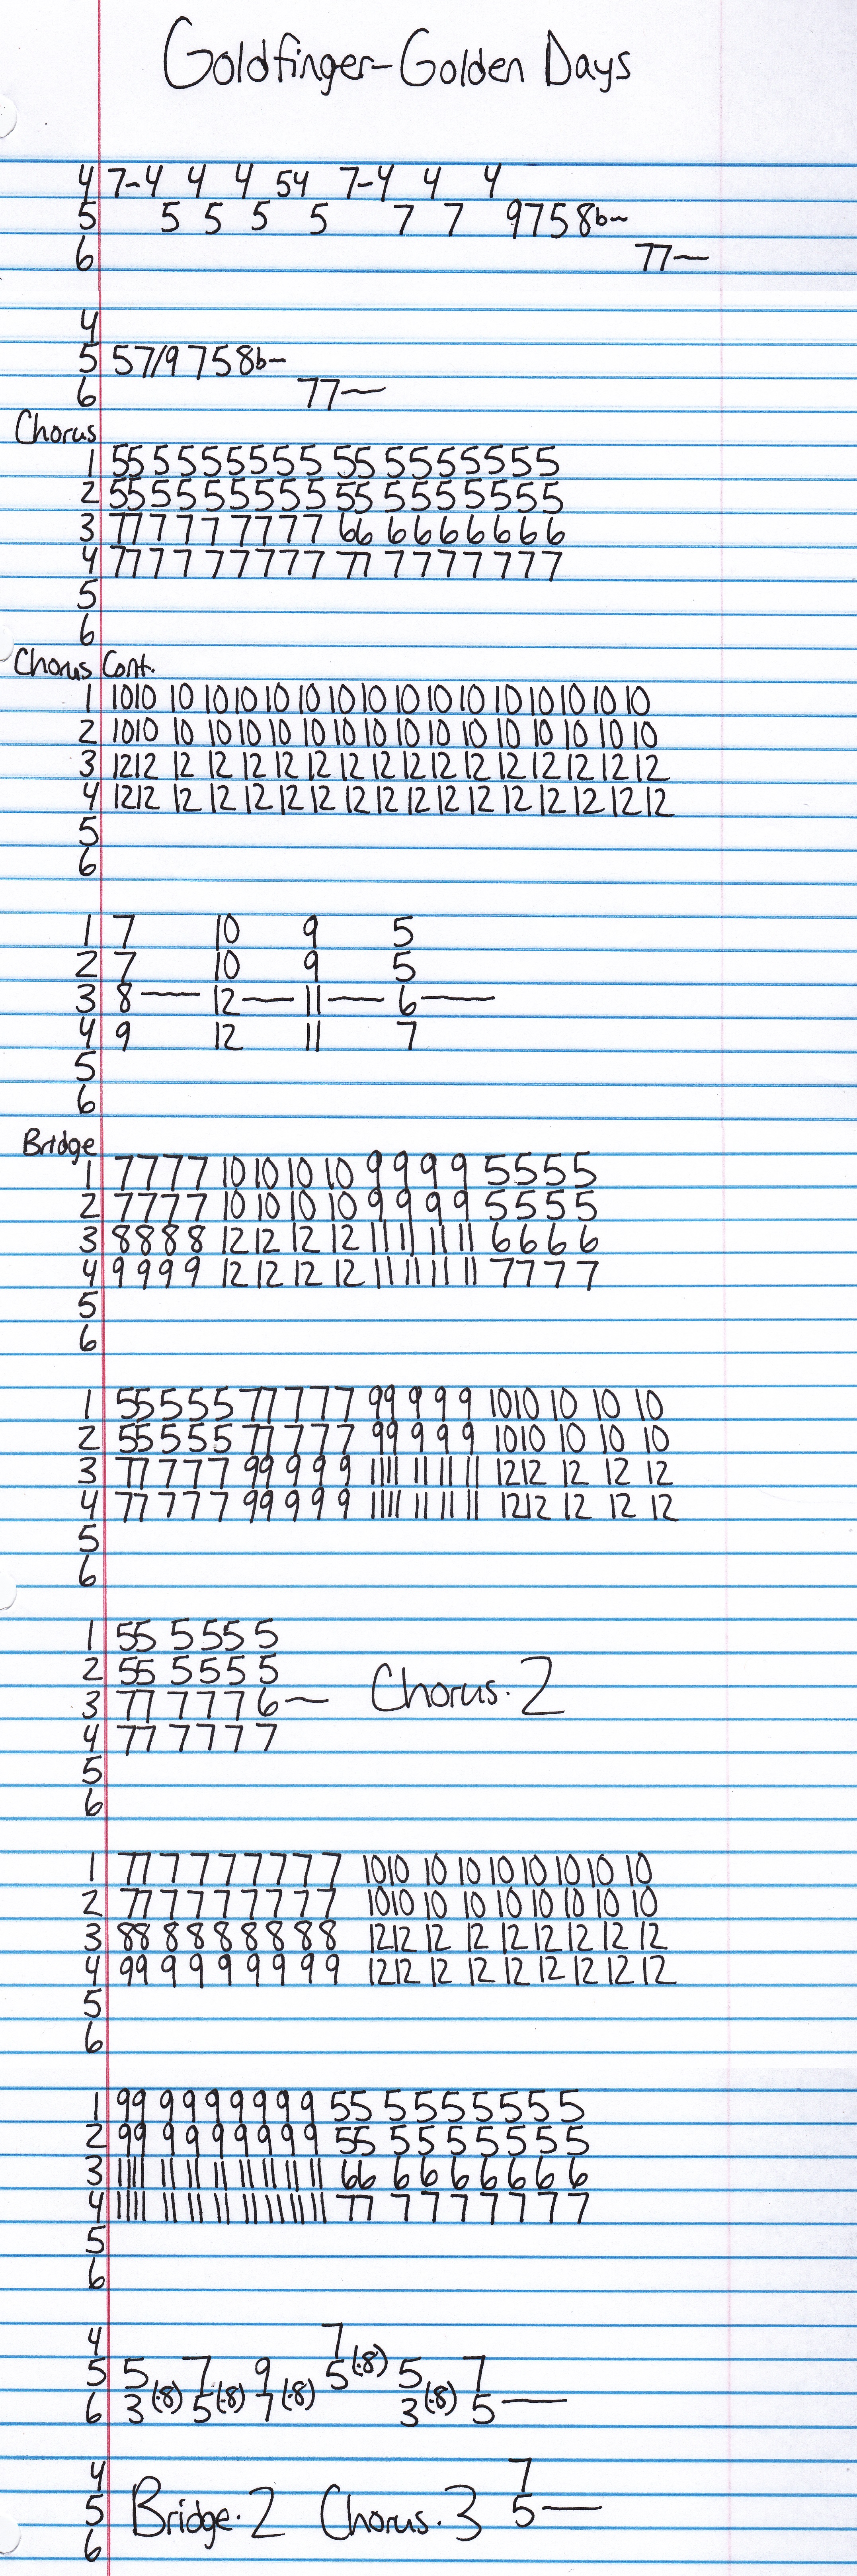 Goldfinger-Golden Days
4 7-4 4 4 54 7-4 4 4
5 5 5 5 5 7 7 9758b~
6 77—
4
5 57/9 758b~
6 77—
Chorus
1 55 5 5 5 5 5 5 5 55 5 5 5 5 5 5 5
2 55 5 5 5 5 5 5 5 55 5 5 5 5 5 5 5
3 77 7 7 7 7 7 7 7 66 6 6 6 6 6 6 6
4 77 7 7 7 7 7 7 7 77 7 7 7 7 7 7 7
5
6
Chorus Cont.
1 1010 10 10 10 10 10 10 10 10 10 10 10 10 10 10 10
2 1010 10 10 10 10 10 10 10 10 10 10 10 10 10 10 10
3 1212 12 12 12 12 12 12 12 12 12 12 12 12 12 12 12
4 1212 12 12 12 12 12 12 12 12 12 12 12 12 12 12 12
5
6
1 7 10 9 5
2 7 10 9 5
3 8—12—11—6—
4 9 12 11 7
5
6
Bridge
1 7 7 7 7 10 10 10 10 9 9 9 9 5 5 5 5
2 7 7 7 7 10 10 10 10 9 9 9 9 5 5 5 5
3 8 8 8 8 12 12 12 12 11 11 11 11 6 6 6 6
4 9 9 9 9 12 12 12 12 11 11 11 11 7 7 7 7
5
6
1 55 5 5 5 77 7 7 7 99 9 9 9 1010 10 10 10
2 55 5 5 5 77 7 7 7 99 9 9 9 1010 10 10 10
3 77 7 7 7 99 9 9 9 1111 11 11 11 1212 12 12 12
4 77 7 7 7 99 9 9 9 1111 11 11 11 1212 12 12 12
5
6
1 55 5 5 5 5
2 55 5 5 5 5
3 77 7 7 7 6— Chorus·2
4 77 7 7 7 7
5
6
1 77 7 7 7 7 7 7 7 1010 10 10 10 10 10 10 10
2 77 7 7 7 7 7 7 7 1010 10 10 10 10 10 10 10
3 88 8 8 8 8 8 8 8 1212 12 12 12 12 12 12 12
4 99 9 9 9 9 9 9 9 1212 12 12 12 12 12 12 12
5
6
1 99 9 9 9 9 9 9 9 55 5 5 5 5 5 5 5
2 99 9 9 9 9 9 9 9 55 5 5 5 5 5 5 5
3 1111 11 11 11 11 11 11 11 66 6 6 6 6 6 6 6
4 1111 11 11 11 11 11 11 11 77 7 7 7 7 7 7 7
5
6
4 7
5 5 7 9 5(·8) 5 7
6 3(·8) 5(·8) 7(·8) 3(·8) 5—
4 7
5 Bridge·2 Chorus·3 5—
6